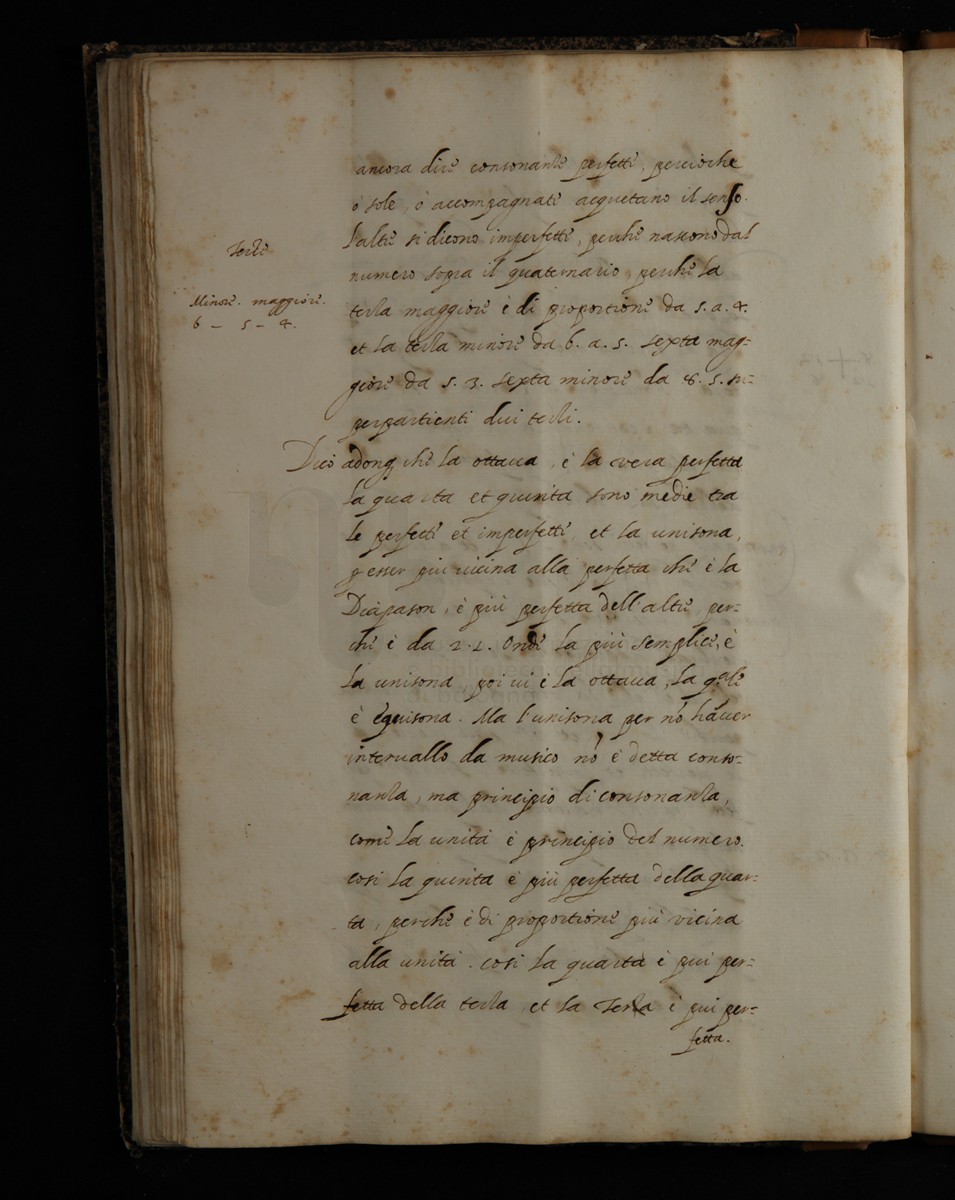 ancora dire consonante perfette, percioche
ò sole, ò accompagnate acquetano il senso.
l'altre si dicono imperfette, perche nascono dal
numero sopra il quaternario, perche la
Terze
Minore. maggiore.
6 – 5 – 4.
terza maggiore è di proportione da 5. a. 4.
et la terza minore da 6. a. 5. sexta mag=
giore da 5. 3. sexta minore da 8. 5. su=
perpartienti dui terzi.
Dico adonq che la ottaua, è la vera perfetta
la quarta et quinta sono medie tra
le perfecte et imperfette, et la unisona,
p esser piu vicina alla perfetta che è la
Diapason, è più perfetta dell'altre, per=
che è da 2. 1. Onde la più semplice, è
la unisona, poi ui è la ottaua, la q.le
è equisona. Ma l'unisona per nō hauer
interuallo da musico nō è detta conso=
nanza, ma principio di consonanza,
come la unità è principio del numero.
cosi la quinta è più perfetta della quar=
ta, perche è di proportione più vicina
alla unità. cosi la quarta è piu per=
fetta della terza, et la Terza è piu per=
fetta.